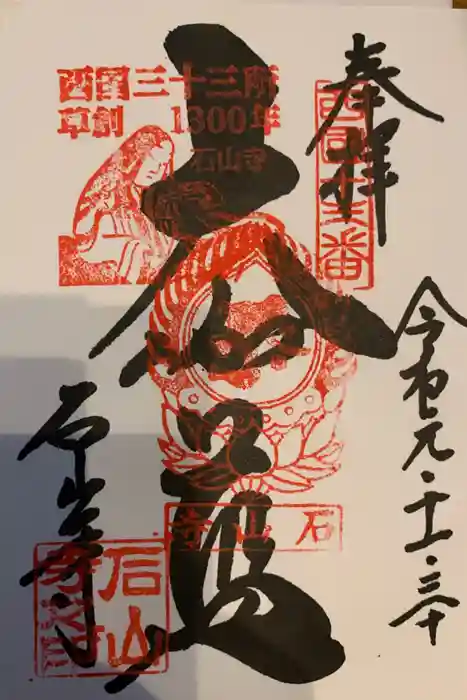 奉拝
西国十三番
令和元・十一・三十
西国三十三所
草創 1300年
石山寺
大伽藍
石山寺
石山寺
石山